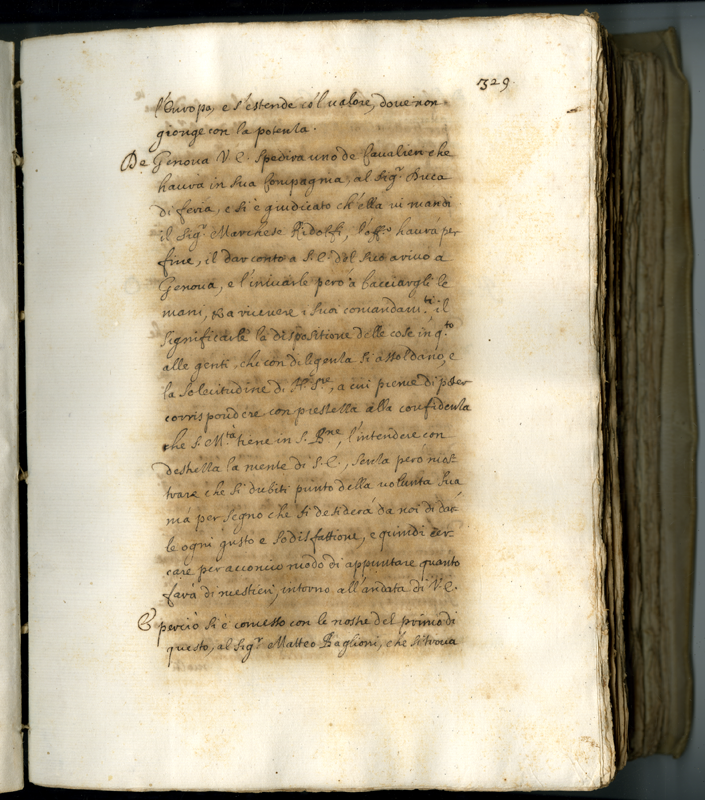 329.
l'Europa, e s'estende co'l valore, dove non
gionge con la potenza.
De Genova V. E. spedirà uno de Cavalieri che
haurà in sua Compagnia, al Sig.r Duca
di feria, e si è giudicato ch'ella vi mandi
il Sig.r Marchese Ridolfi, l'off.o haurà per
fine, il dar conto a S. E. del suo arivo à
Genova, e l'inviarle però à bacciargli le
mani, & a ricevere i suoi comandam.ti, il
significarle la dispositione delle cose in q.to
alle genti, che con diligenza si assoldano, e
la solecitudine di N. S.re, a cui preme di poter
corrispondere con prestezza alla confidenza
che S. M.tà tiene in S. B.ne, l'intendere con
destrezza la mente di S. E., senza però mos=
trare che si dubiti punto della volunta sua
mà per segno che si desiderà da noi di dar=
le ogni gusto e sodisfattione, e quindi cer=
care per acconcio modo di appuntare quanto
farà di mestieri, intorno all'andata di V. E.
E perciò si è comesso con le nostre del primo di
questo, al Sig.r Matteo Baglioni, che si trova